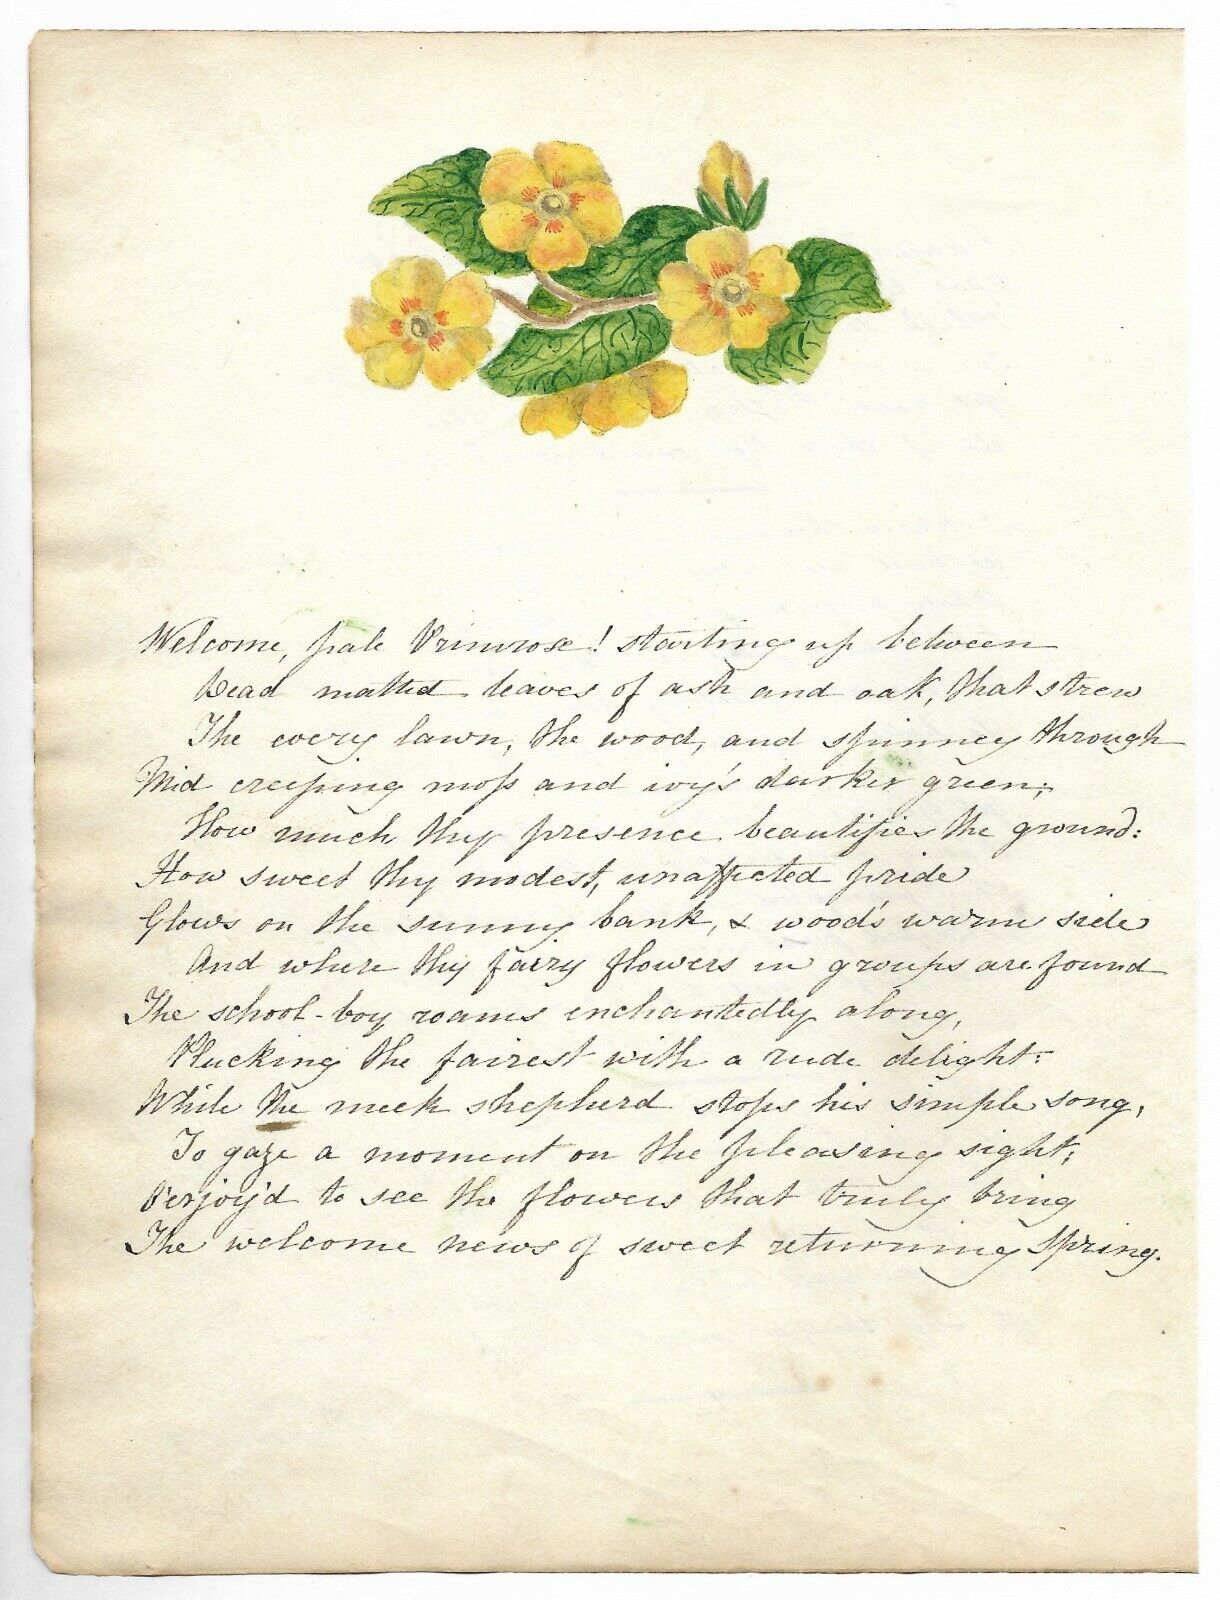 Welcome, pale Primrose! starting up between
Dead matted leaves of ash and oak, that strew
The every lawn, the wood, and spinney through
Mid creeping moss and ivy's darker green;
How much thy presence beautifies the ground:
How sweet thy modest, unaffected pride
Glows on the sunny bank, & wood's warm side
And where thy fairy flowers in groups are found
The school-boy roams enchantedly along,
Plucking the fairest with a rude delight:
While the meek shepherd stops his simple song,
To gaze a moment on the pleasing sight;
O'erjoy'd to see the flowers that truly bring
The welcome news of sweet returning Spring.